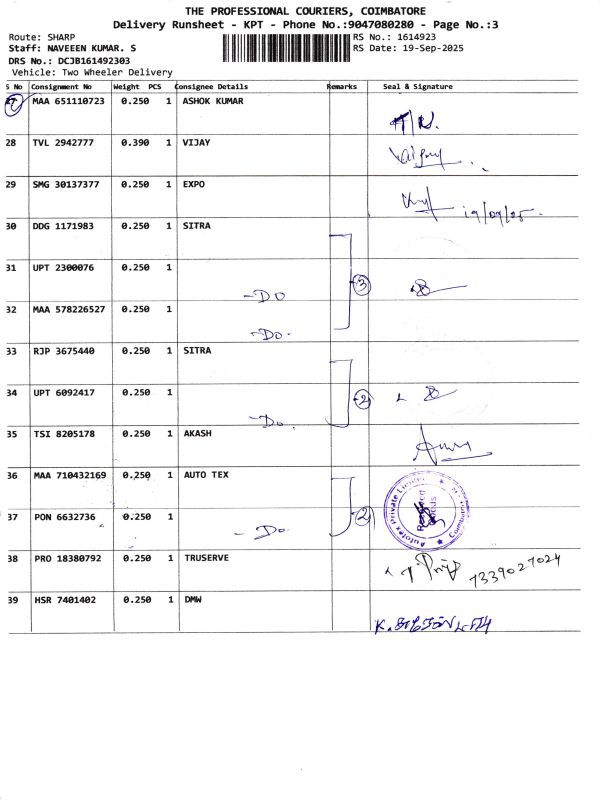 THE PROFESSIONAL COURIERS, COIMBATORE
Delivery Runsheet - KPT - Phone No.:9047080280 - Page No.:3
Route: SHARP RS No.: 1614923
Staff: NAVEEEN KUMAR. S RS Date: 19-Sep-2025
DRS No.: DCJB161492303
Vehicle: Two Wheeler Delivery
S No Consignment No Weight PCS Consignee Details Remarks Seal & Signature
27 MAA 651110723 0.250 1 ASHOK KUMAR
28 TVL 2942777 0.390 1 VIJAY
29 SMG 30137377 0.250 1 EXPO
19/09/25.
30 DDG 1171983 0.250 1 SITRA
31 UPT 2300076 0.250 1
-DO 3
32 MAA 578226527 0.250 1
-Do.
33 RJP 3675440 0.250 1 SITRA
34 UPT 6092417 0.250 1
-Do. 2
35 TSI 8205178 0.250 1 AKASH
36 MAA 710432169 0.250 1 AUTO TEX
Autotex Private Limited
37 PON 6632736 0.250 1
-Do. 2
38 PRO 18380792 0.250 1 TRUSERVE
7339027024
39 HSR 7401402 0.250 1 DMW